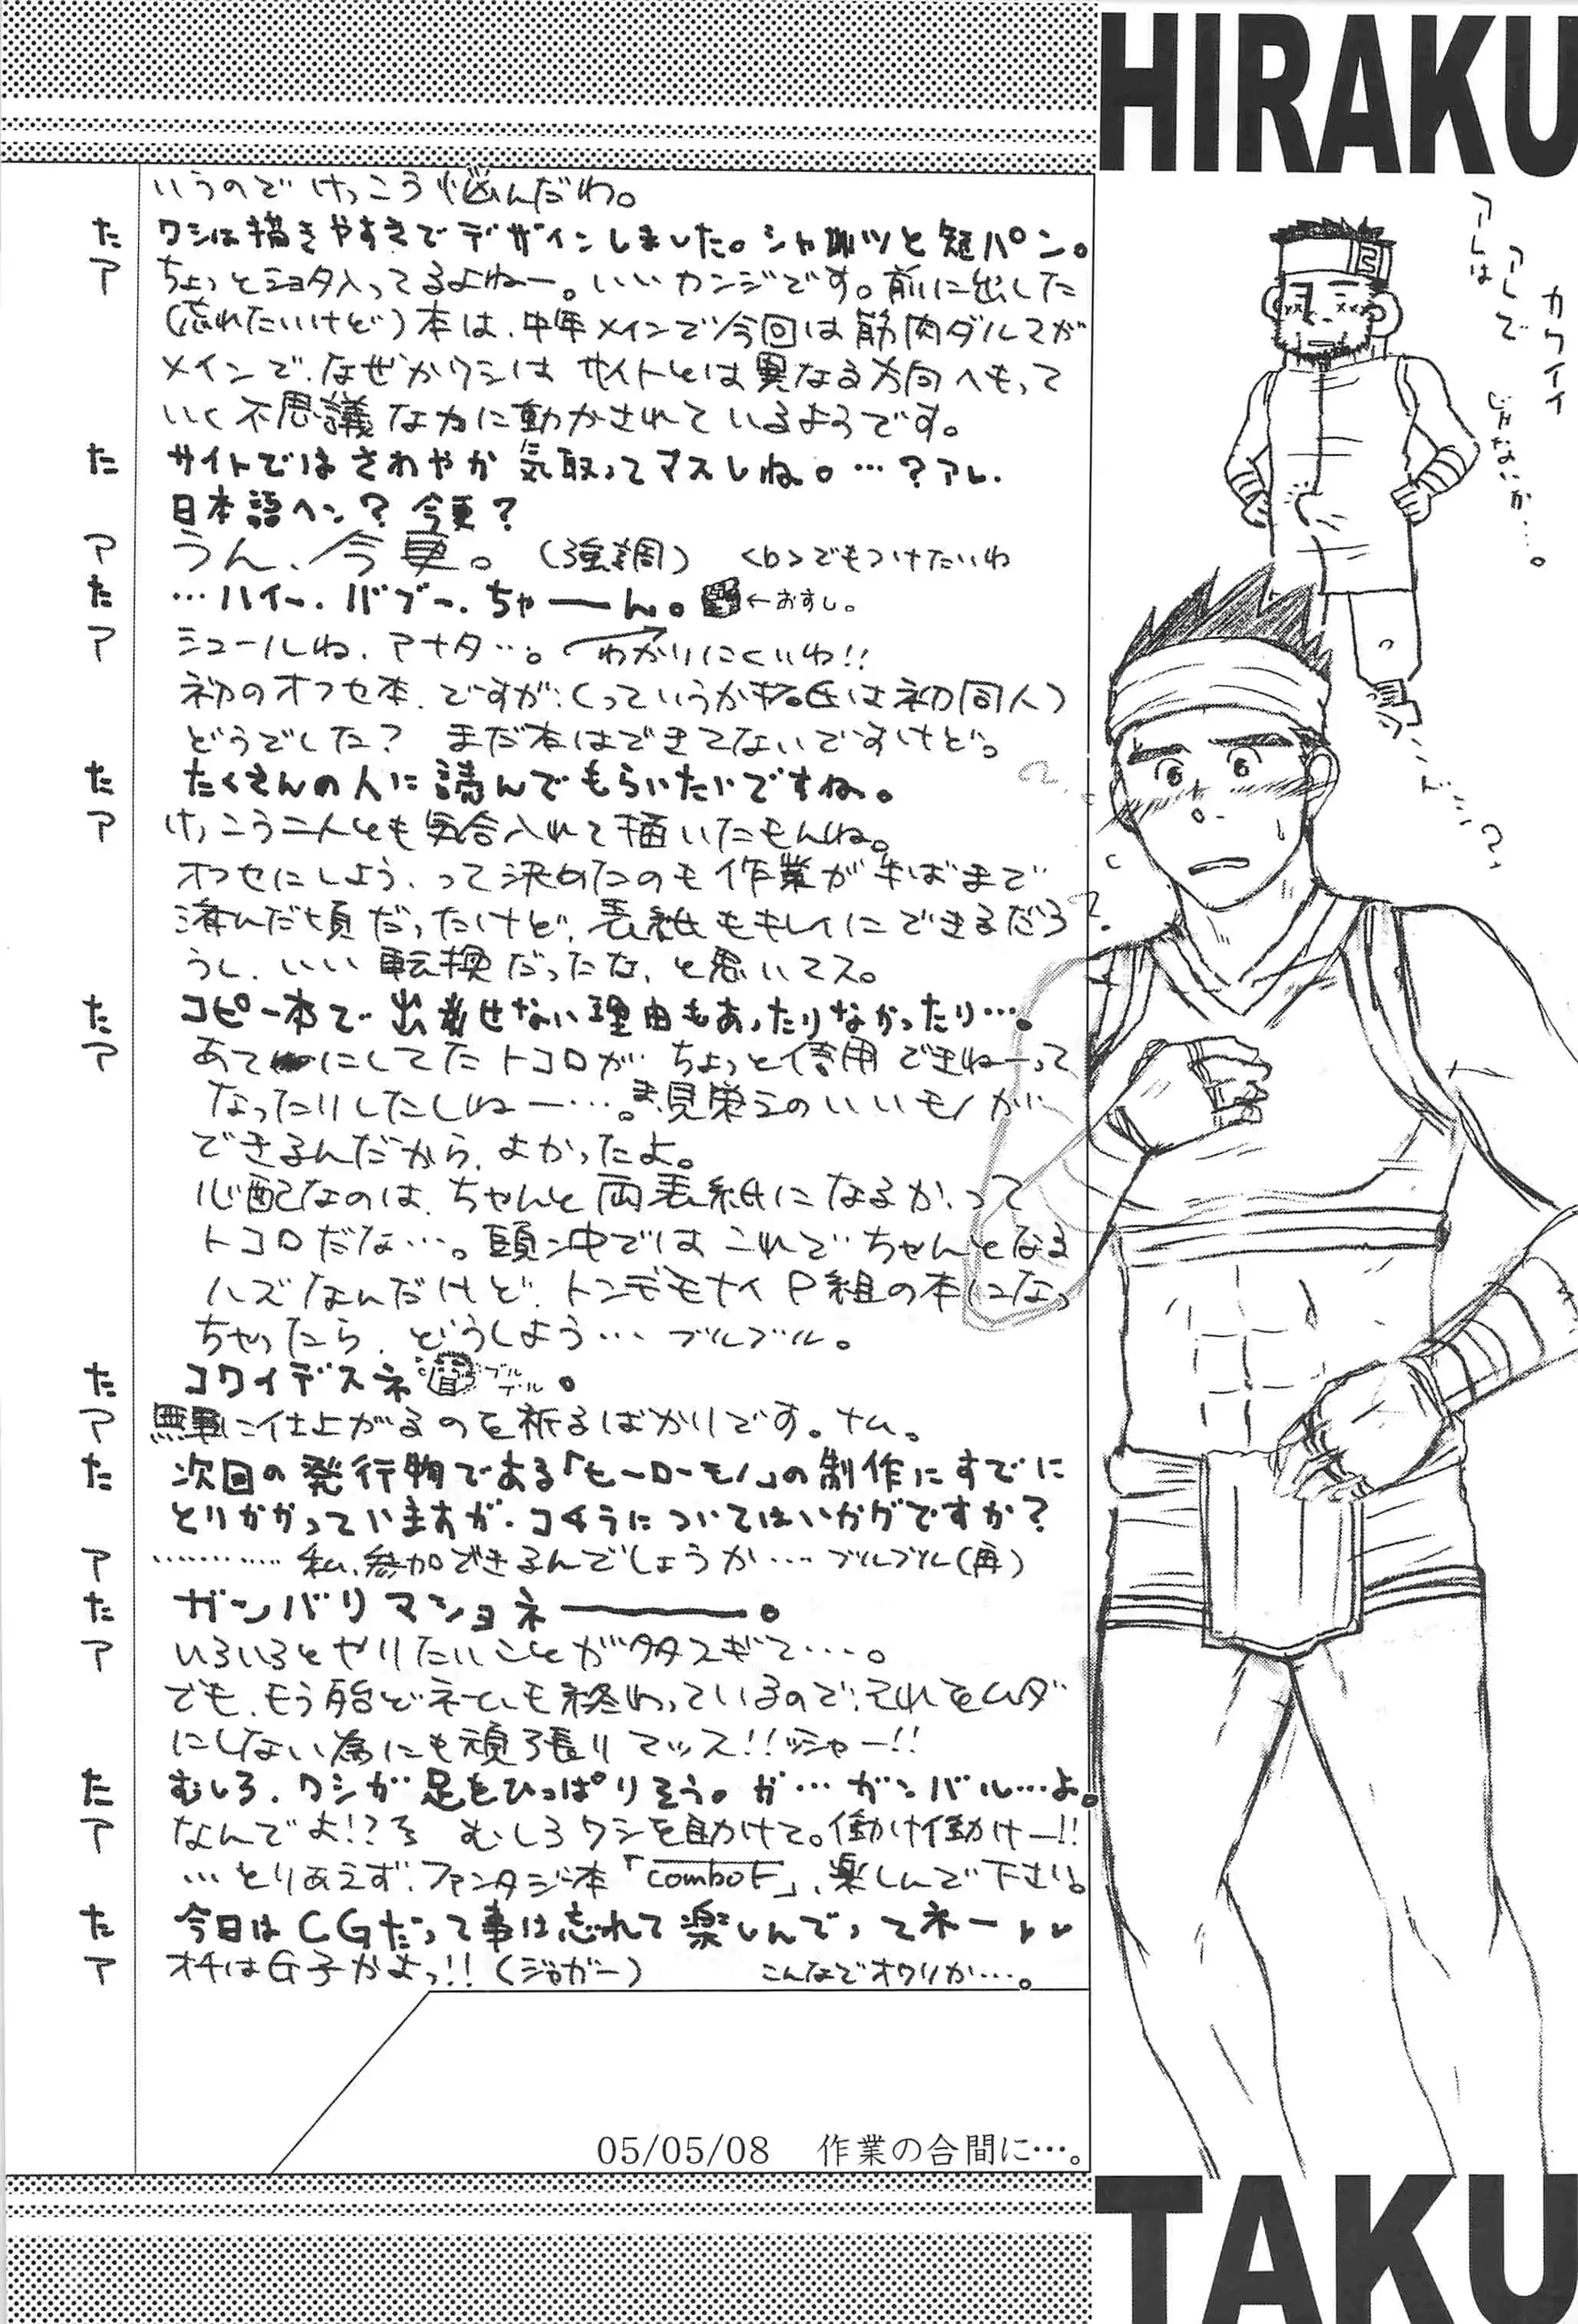 HIRAKU
いうのでけっこう悩んだわ。
た ワシは描きやすさでデザインしました。シャツと短パン。
ア ちょっとショタ入ってるよねー。いいカンジです。前に出した
(忘れたいけど)本は、中年メインで今回は筋肉ダルマが
メインで、なぜかワシはサイトとは異なる方向へもって
いく不思議な力に動かされているようです。
た サイトではさわやか気取ってマスしね。…?アレ、
日本語ヘン?今更?
ア うん、今更。(強調) <b>でもつけたいわ
た …ハイー、バブー、ちゃーーん。←おすし。
ア シュールね、アナタ…。わかりにくいわ!!
初のオフセ本、ですが、(っていうか 氏は初同人)
どうでした? まだ本はできてないですけど。
た たくさんの人に読んでもらいたいですね。
ア けっこう二人とも気合入れて描いたもんね。
オフセにしよう、って決めたのも作業が半ばまで
済んだ頃だったけど、表紙もキレイにできるだろ
うし、いい転換だったな、と思いマス。
た コピー本で出せない理由もあったりなかったり…。
ア あてにしてたトコロが、ちょっと信用できねーって
なったりしたしねー…。ま、見栄えのいいモノが
できるんだから、よかったよ。
心配なのは、ちゃんと両表紙になるか、って
トコロだな…。頭ン中ではこれでちゃんとなる
ハズなんだけど、トンデモナイP組の本になっ
ちゃったら、どうしよう…ブルブル。
た コワイデスネ ブルブル。
ア 無事に仕上がるのを祈るばかりです。ナム。
た 次回の発行物である「ヒーローモノ」の制作にすでに
とりかかっていますが、コチラについてはいかがですか?
ア …………私、参加できるんでしょうか…ブルブル(再)
た ガンバリマショネーーー。
ア いろいろとやりたいことが多スギて…。
でも、もう殆どネームも終わっているので、それをムダ
にしない為にも頑張りマッス!!ッシャー!!
た むしろ、ワシが足をひっぱりそう。が…ガンバル…よ。
ア なんでよ!?むしろワシを助けて。働け働けー!!
…とりあえず、ファンタジー本「comboF」、楽しんで下さい。
た 今日はCGだって事は忘れて楽しんでってネー
ア オチはG子かよっ!!(ジョガー) こんなでオワリか…。
05/05/08 作業の合間に…。
アレは
アレで
カワイイ
じゃないか…。
TAKU